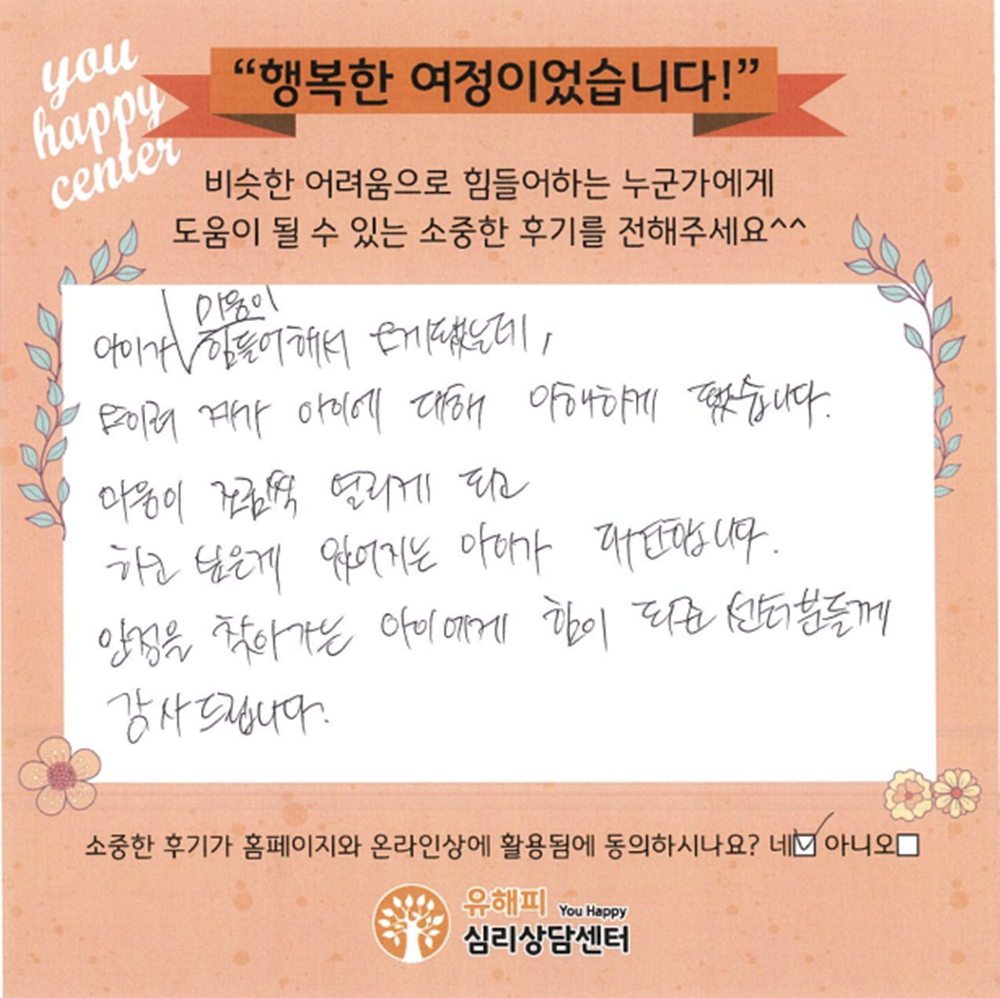 you
happy
center
“행복한 여정이었습니다!”
비슷한 어려움으로 힘들어하는 누군가에게
도움이 될 수 있는 소중한 후기를 전해주세요^^
마음이
아이가 힘들어해서 오게됐는데,
오히려 제가 아이에 대해 이해하게 됐습니다.
마음이 조금씩 열리게 되고
하고 싶은게 많아지는 아이가 대단합니다.
안정을 찾아가는 아이에게 힘이 되준 센터분들께
감사드립니다.
소중한 후기가 홈페이지와 온라인상에 활용됨에 동의하시나요? 네☑ 아니오☐
유해피 You Happy
심리상담센터